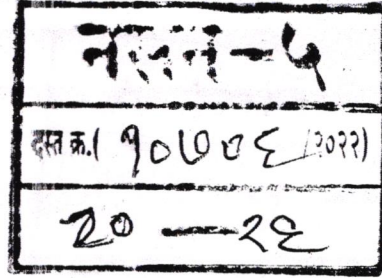 नसन-५
दस्त क्र.( १०७०६ /२०२२)
२० — २९